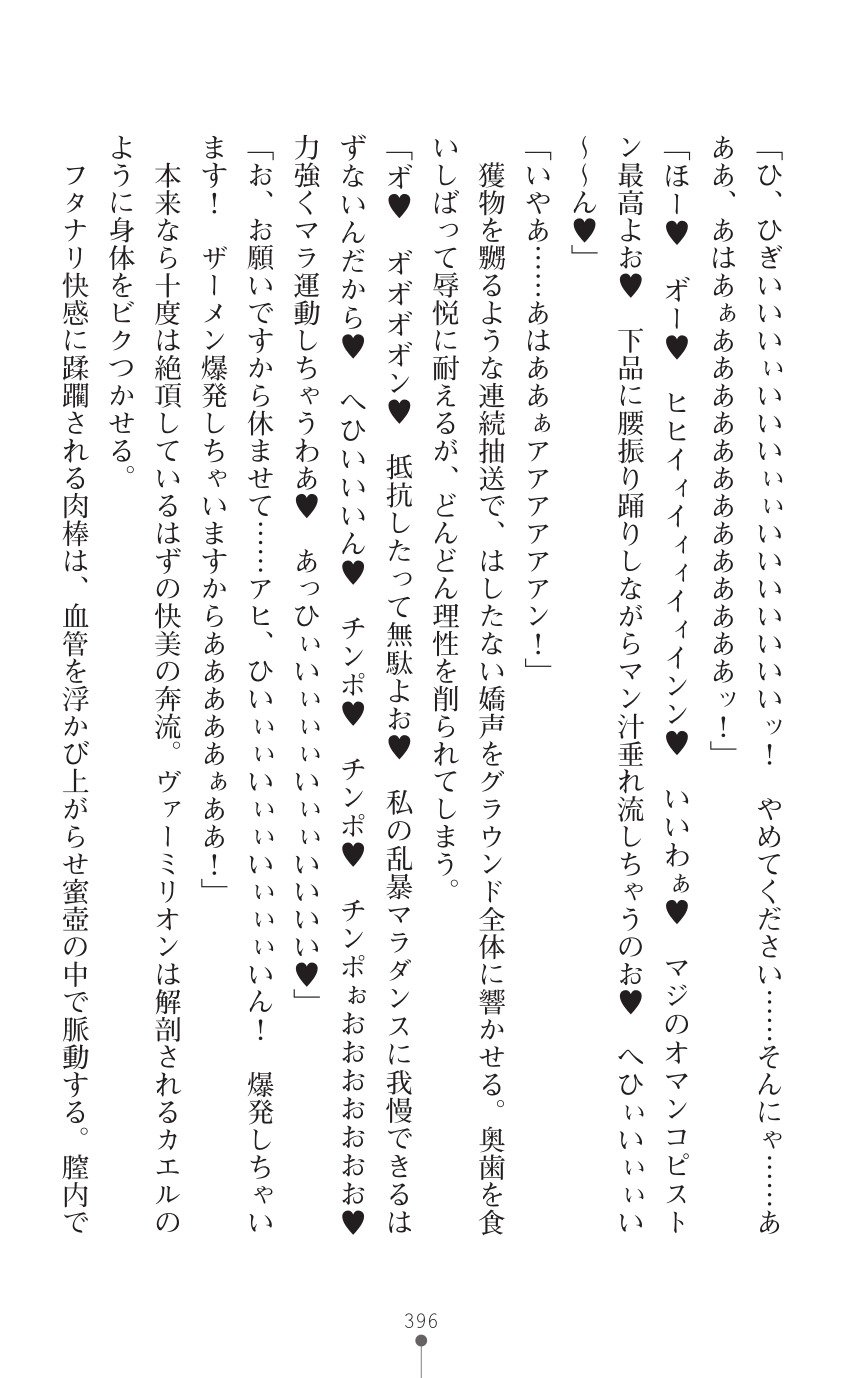 「ひ、ひぎいいいぃいいいぃぃいいいいいいいッ！　やめてください……そんにゃ……あ
ああ、あはあぁああああああああああああッ！」
「ほー♥　オ゛ー♥　ヒヒイィイィィイィインン♥　いいわぁ♥　マジのオマンコピスト
ン最高よお♥　下品に腰振り踊りしながらマン汁垂れ流しちゃうのお♥　へひぃいぃぃい
～～ん♥」
「いやあ……あはああぁアアアアアアン！」
　獲物を嬲るような連続抽送で、はしたない嬌声をグラウンド全体に響かせる。奥歯を食
いしばって辱悦に耐えるが、どんどん理性を削られてしまう。
「オ゛♥　オ゛オ゛オ゛オ゛ン♥　抵抗したって無駄よお♥　私の乱暴マラダンスに我慢できるは
ずないんだから♥　へひぃいいん♥　チンポ♥　チンポ♥　チンポぉおおおおおおお♥
力強くマラ運動しちゃうわあ♥　あっひぃいぃいぃいぃぃいいいい♥」
「お、お願いですから休ませて……アヒ、ひいぃぃいぃぃいぃぃぃいん！　爆発しちゃい
ます！　ザーメン爆発しちゃいますからああああああぁああ！」
　本来なら十度は絶頂しているはずの快美の奔流。ヴァーミリオンは解剖されるカエルの
ように身体をビクつかせる。
　フタナリ快感に蹂躙される肉棒は、血管を浮かび上がらせ蜜壺の中で脈動する。膣内で
396